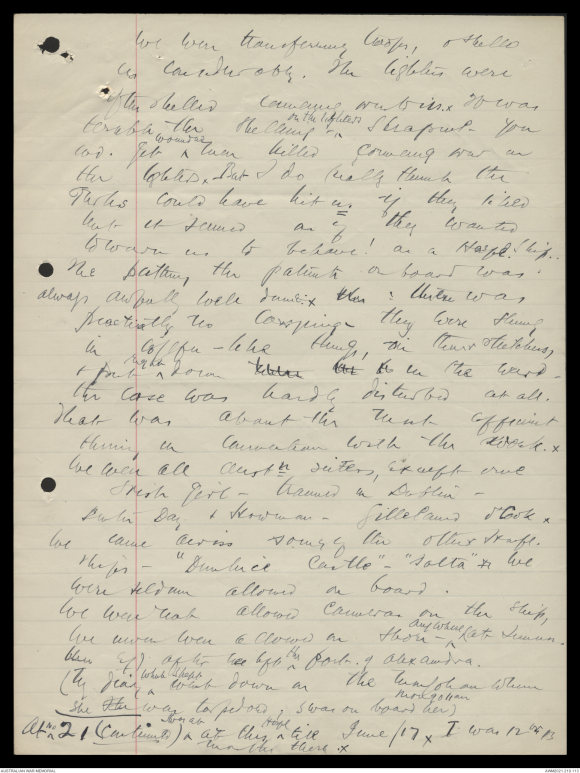 We were transferring troops, & shelled
us considerably. The lighters were
often shelled coming out in. x It was
terrible the shelling on the lighters Shrapnel - You
cd. get wounded & men killed coming out on
the lighters. x But I do really think the
Turks could have hit us if they liked
but it seemed as if they wanted
to warn us to behave! as a Hospt. Ship.
The putting the patients on board was
always awfully well done. x there was
practically no they were slung
in coffin-like things, in their stretchers,
& put right down in the ward.
the case was hardly disturbed at all.
That was about the most efficient
thing in connection with the x
We were all Austn sisters, except one
Irish girl - trained in Dublin -
Sister Day & Howman - Gilleland & Cook. x
We came across some of the other Hospt.
ships - "Dunluce Castle" - "Salta" x We
were seldom allowed on board.
We were not allowed cameras on the ship,
We never were allowed on shore - anywhere (at
after we left the port of Alexandra.
(My diary which I kept went down on the when
she was torpedoed, I was on board her)
At No 21 (continued) x at this Hosp till June /17 x I was 12
months there. x
AUSTRALIAN WAR MEMORIAL